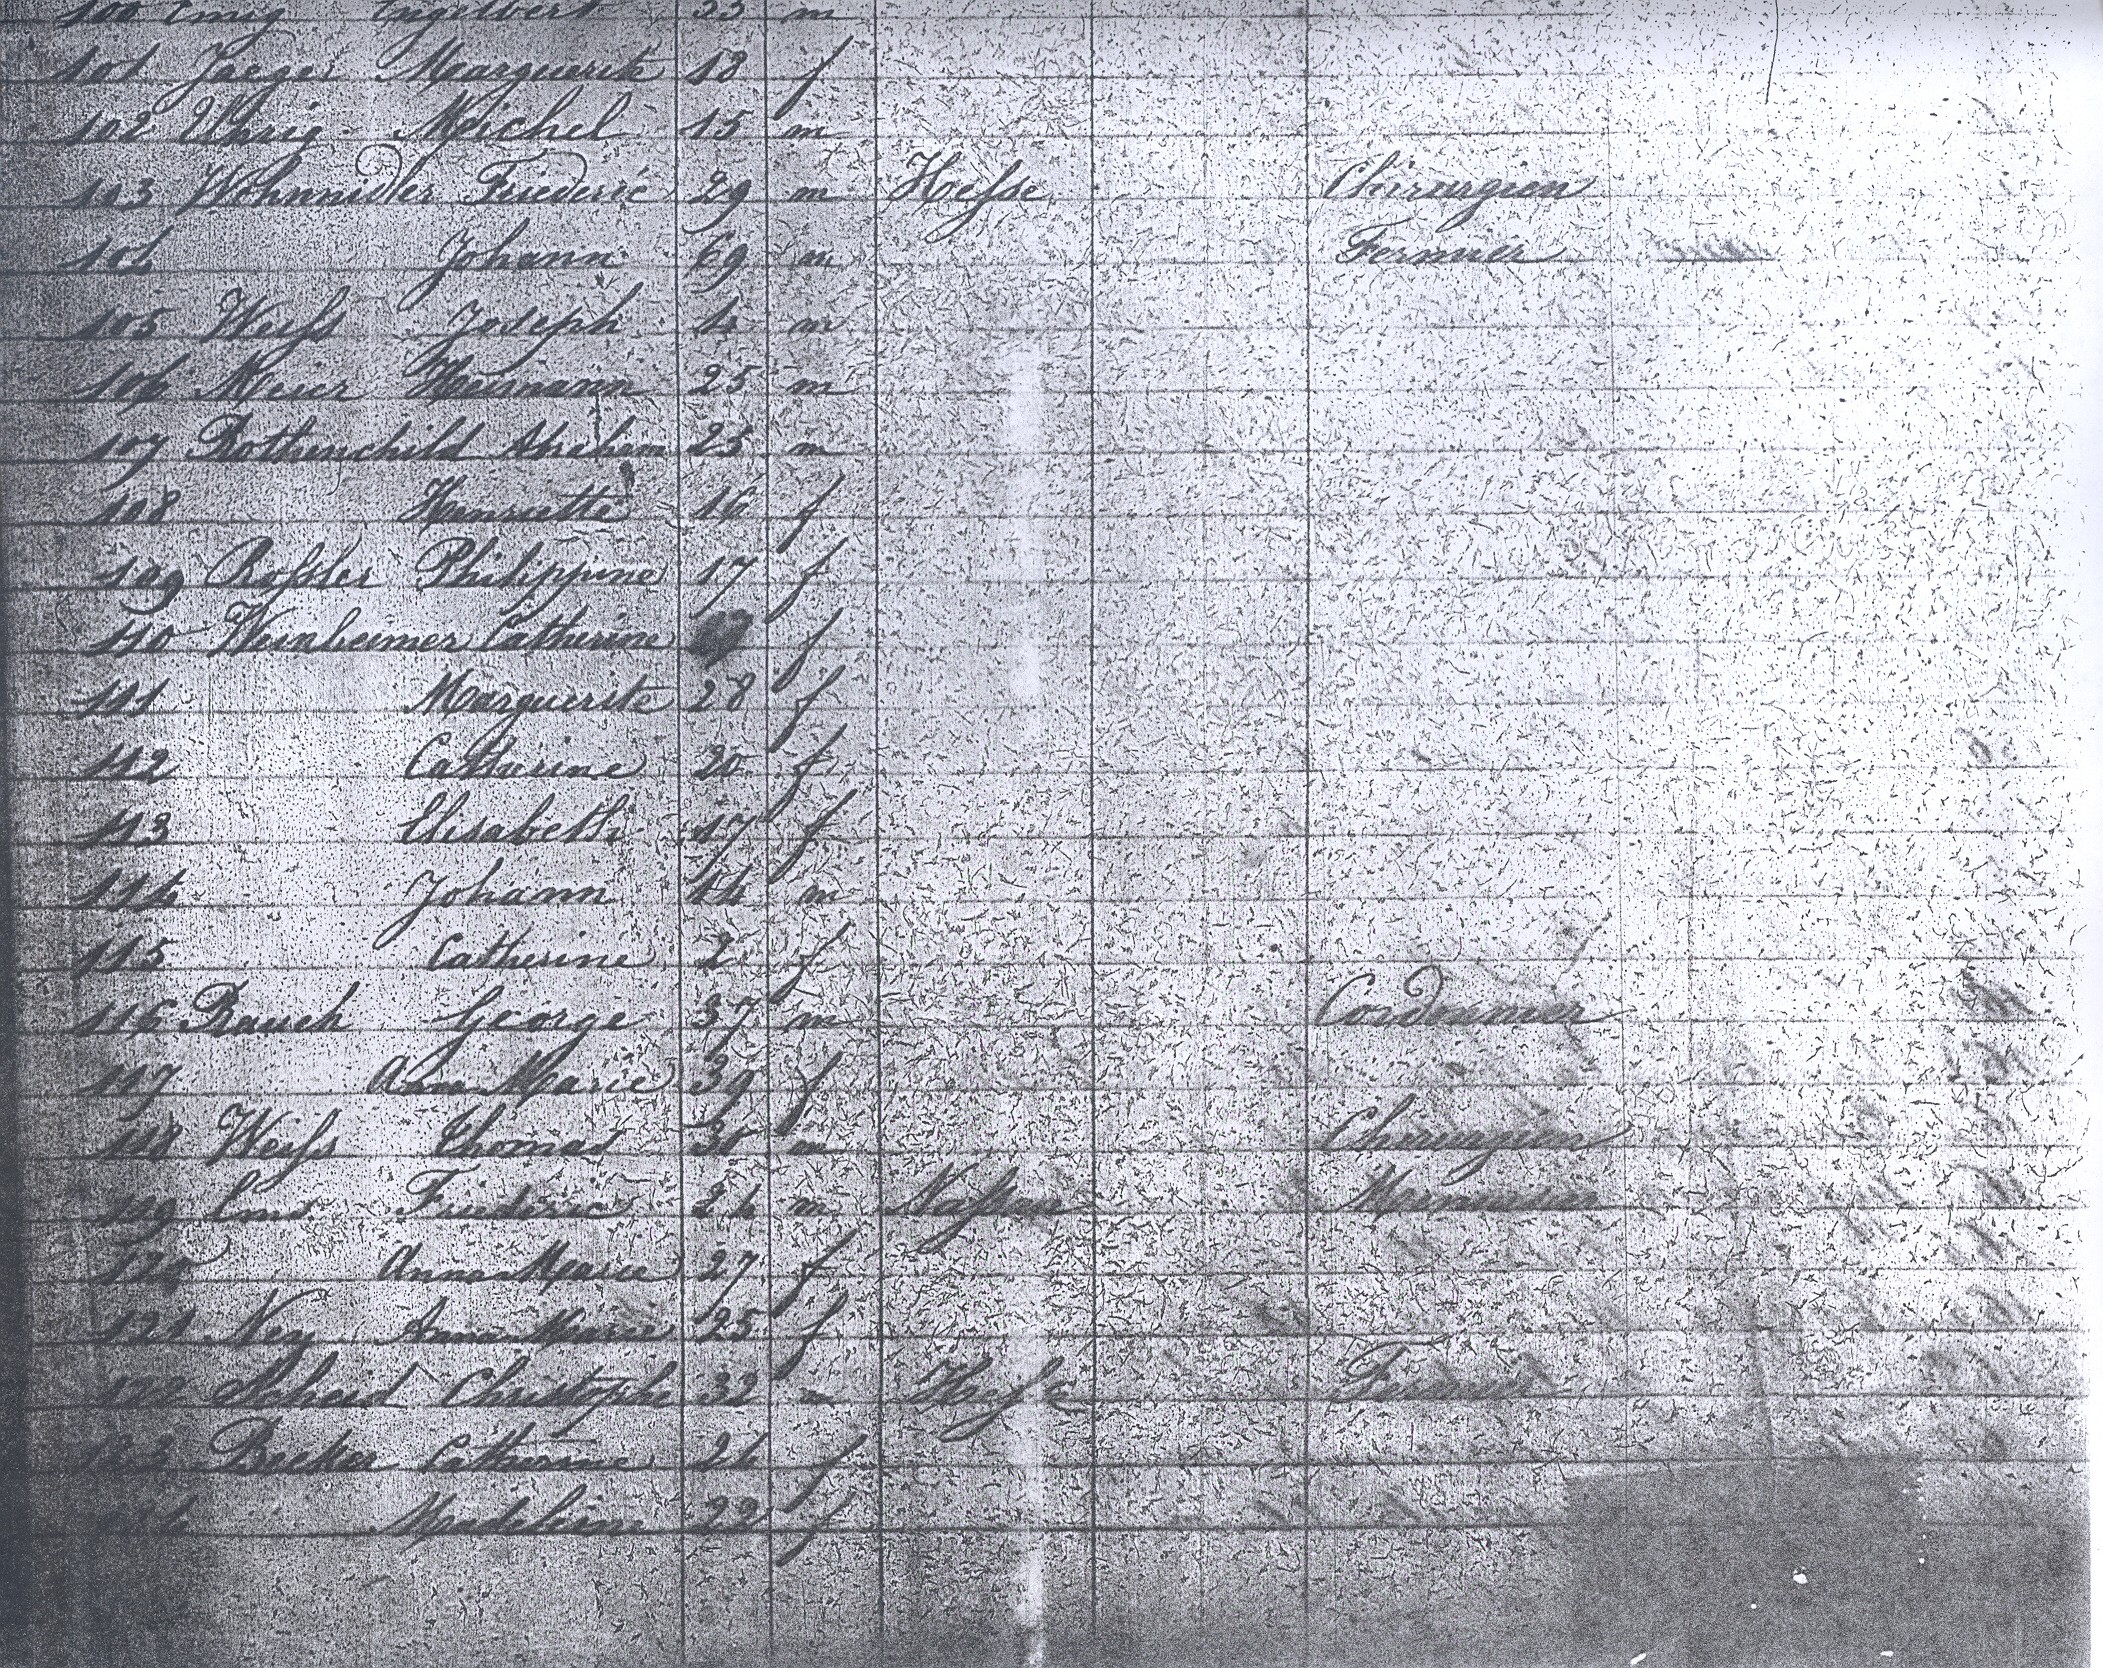 100 Emig Engelbert 33 m
101 Jaeger Marguerite 18 f
102 Uhrig Meichel 15 m
103 Wohnnidler Friederic 29 m Hesse Chirurgien
104 Johann 69 m Fermier
105 Weiss Joseph m
106 Meier Hermann 25 m
107 Rothenchild Abraham 25 m
108 Henriette 16 f
109 Rossler Philippine 17 f
110 Weinheimer Catherine f
111 Marguerite 28 f
112 Catherine 20 f
113 Elisabeth 17 f
114 Johann 14 m
115 Catherine 2 f
116 Rauch George 37 m Cordonnier
117 Anna Marie 39 f
118 Weiss Thomas m Chirurgien
119 Friederic 24 m Nassau Menuisier
120 Anna Marie 27 f
121 Ney Anna Marie 25 f
122 Scheid Christophe 32 m Hesse Fermier
123 Becker Catherine 24 f
124 Madeleine 22 f